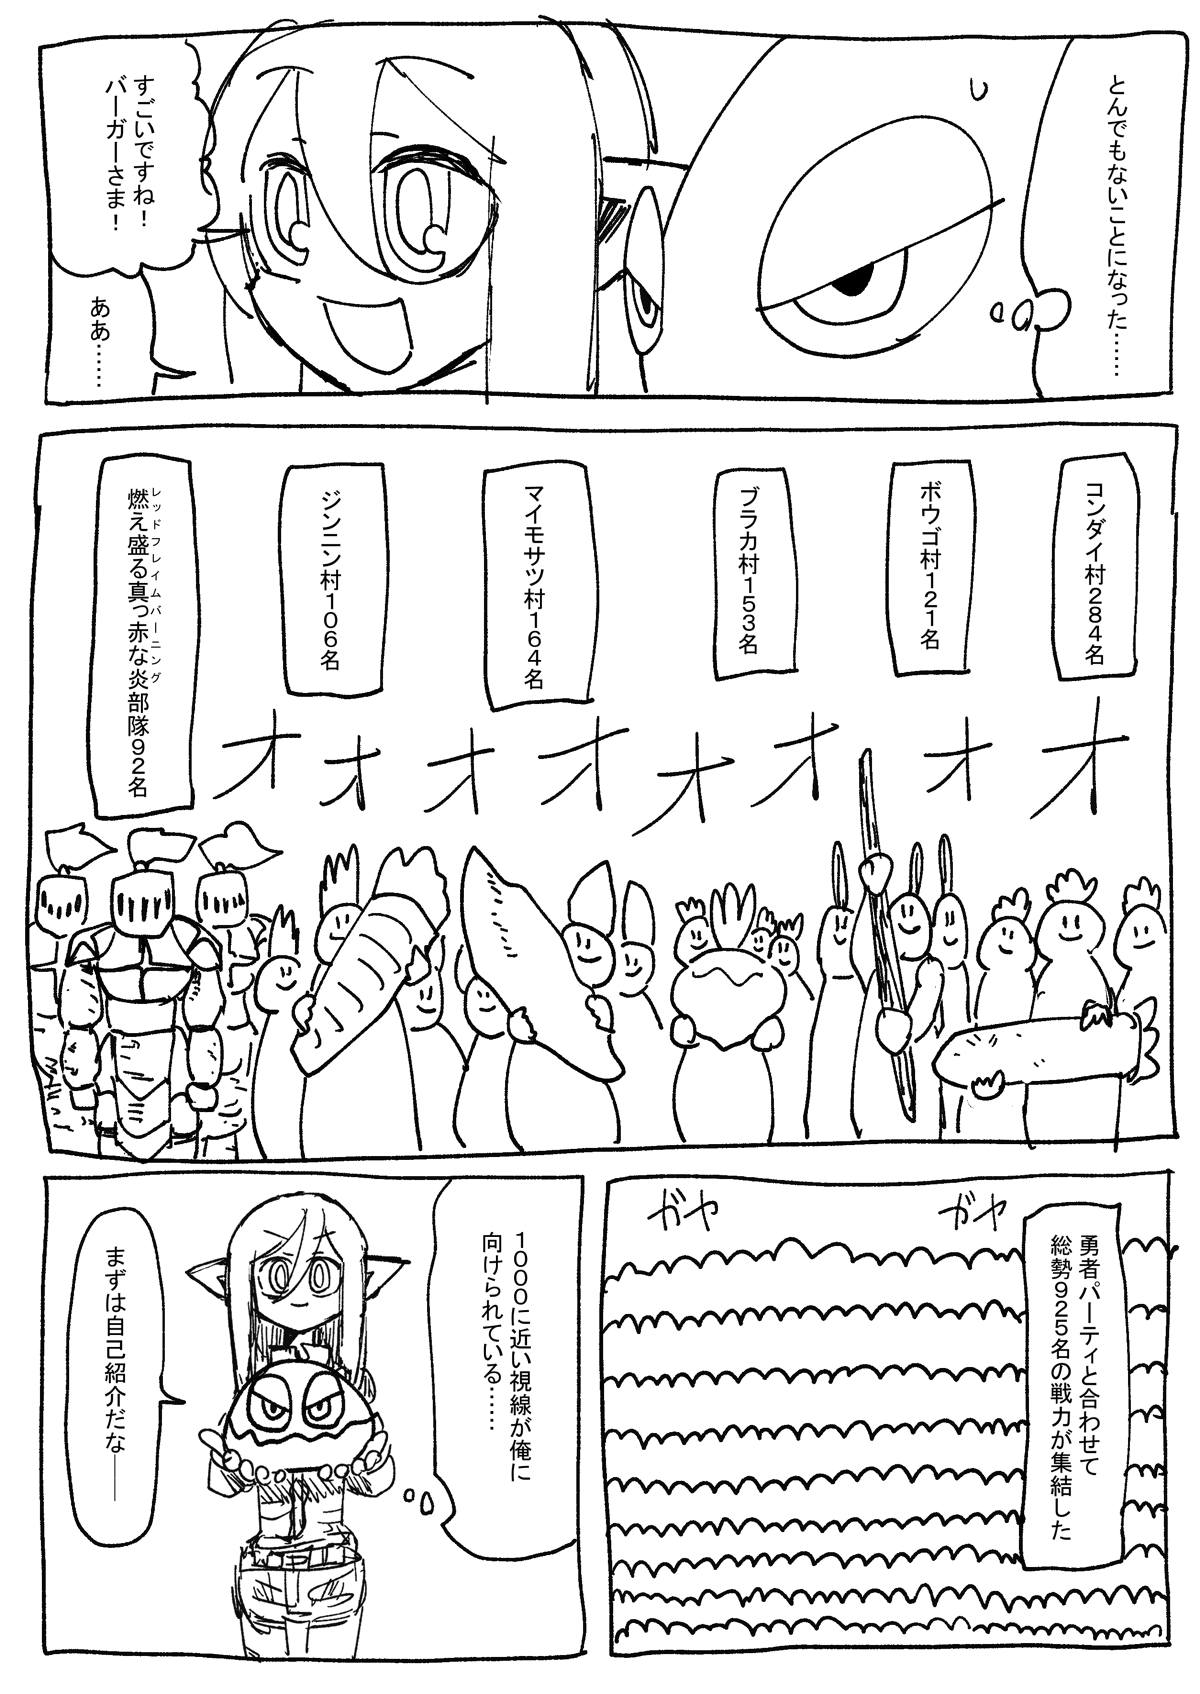 とんでもないことになった……
すごいですね！
バーガーさま！
ああ……
コンダイ村284名
ボウゴ村121名
ブラカ村153名
マイモサツ村164名
ジンニン村106名
レッドフレイムバーニング
燃え盛る真っ赤な炎部隊92名
オオオオオオオオ
勇者パーティと合わせて
総勢925名の戦力が集結した
ガヤ
ガヤ
1000に近い視線が俺に
向けられている……
まずは自己紹介だな――